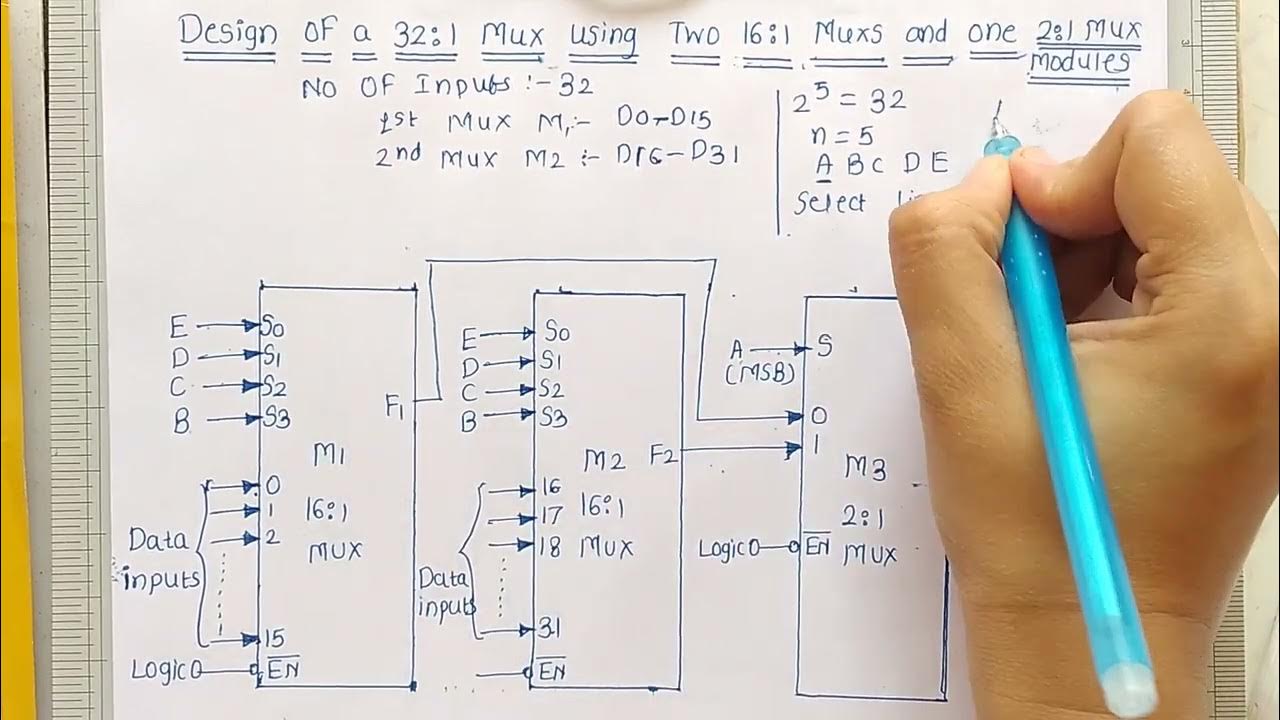 Design OF a 32:1 Mux using Two 16:1 Muxs and one 2:1 MUX
modules
NO OF Inputs :- 32
1st Mux M1:- D0-D15
2nd Mux M2 :- D16-D31
2^5 = 32
n = 5
A B C D E
Select
E S0
D S1
C S2
B S3
F1
M1
16:1
MUX
Data
inputs
0
1
2
15
Logic 0 EN
E S0
D S1
C S2
B S3
F2
M2
16:1
MUX
Data
inputs
16
17
18
31
EN
A S
(MSB)
0
1
M3
2:1
MUX
Logic 0 EN